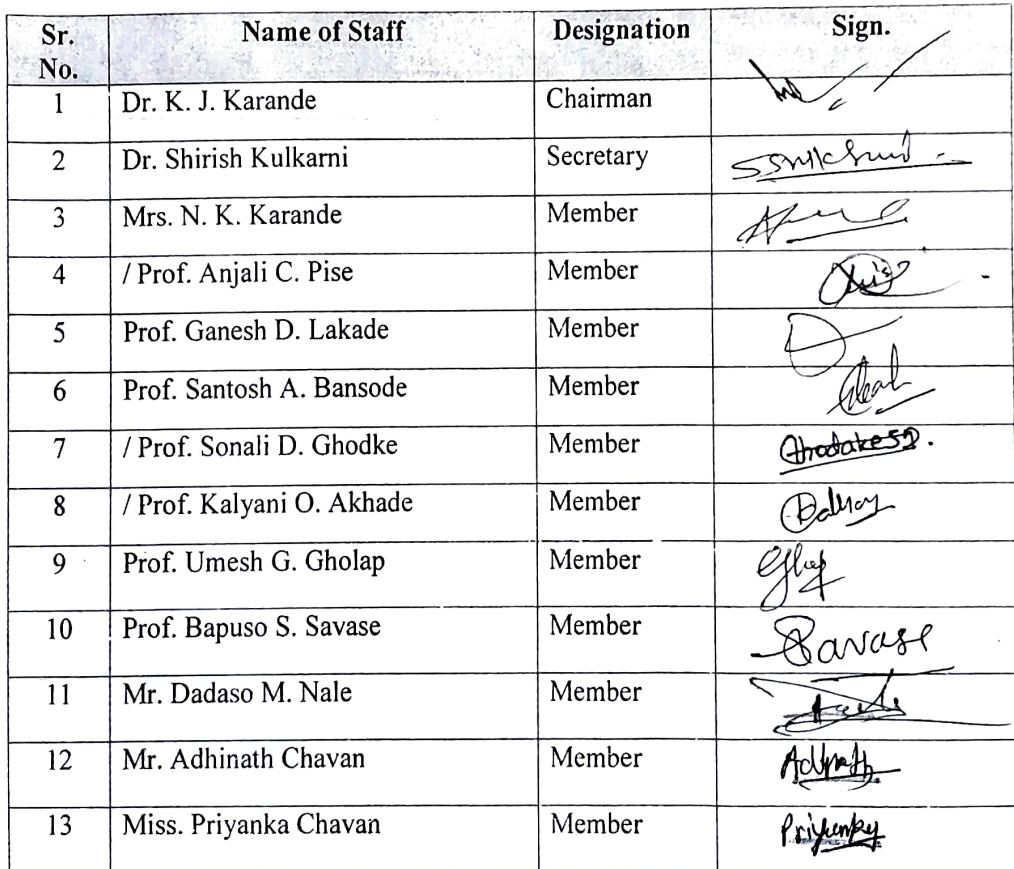 Sr. No. Name of Staff Designation Sign.
1 Dr. K. J. Karande Chairman
2 Dr. Shirish Kulkarni Secretary
3 Mrs. N. K. Karande Member
4 / Prof. Anjali C. Pise Member
5 Prof. Ganesh D. Lakade Member
6 Prof. Santosh A. Bansode Member
7 / Prof. Sonali D. Ghodke Member GhodakeSD.
8 / Prof. Kalyani O. Akhade Member
9 Prof. Umesh G. Gholap Member
10 Prof. Bapuso S. Savase Member Savase
11 Mr. Dadaso M. Nale Member
12 Mr. Adhinath Chavan Member
13 Miss. Priyanka Chavan Member